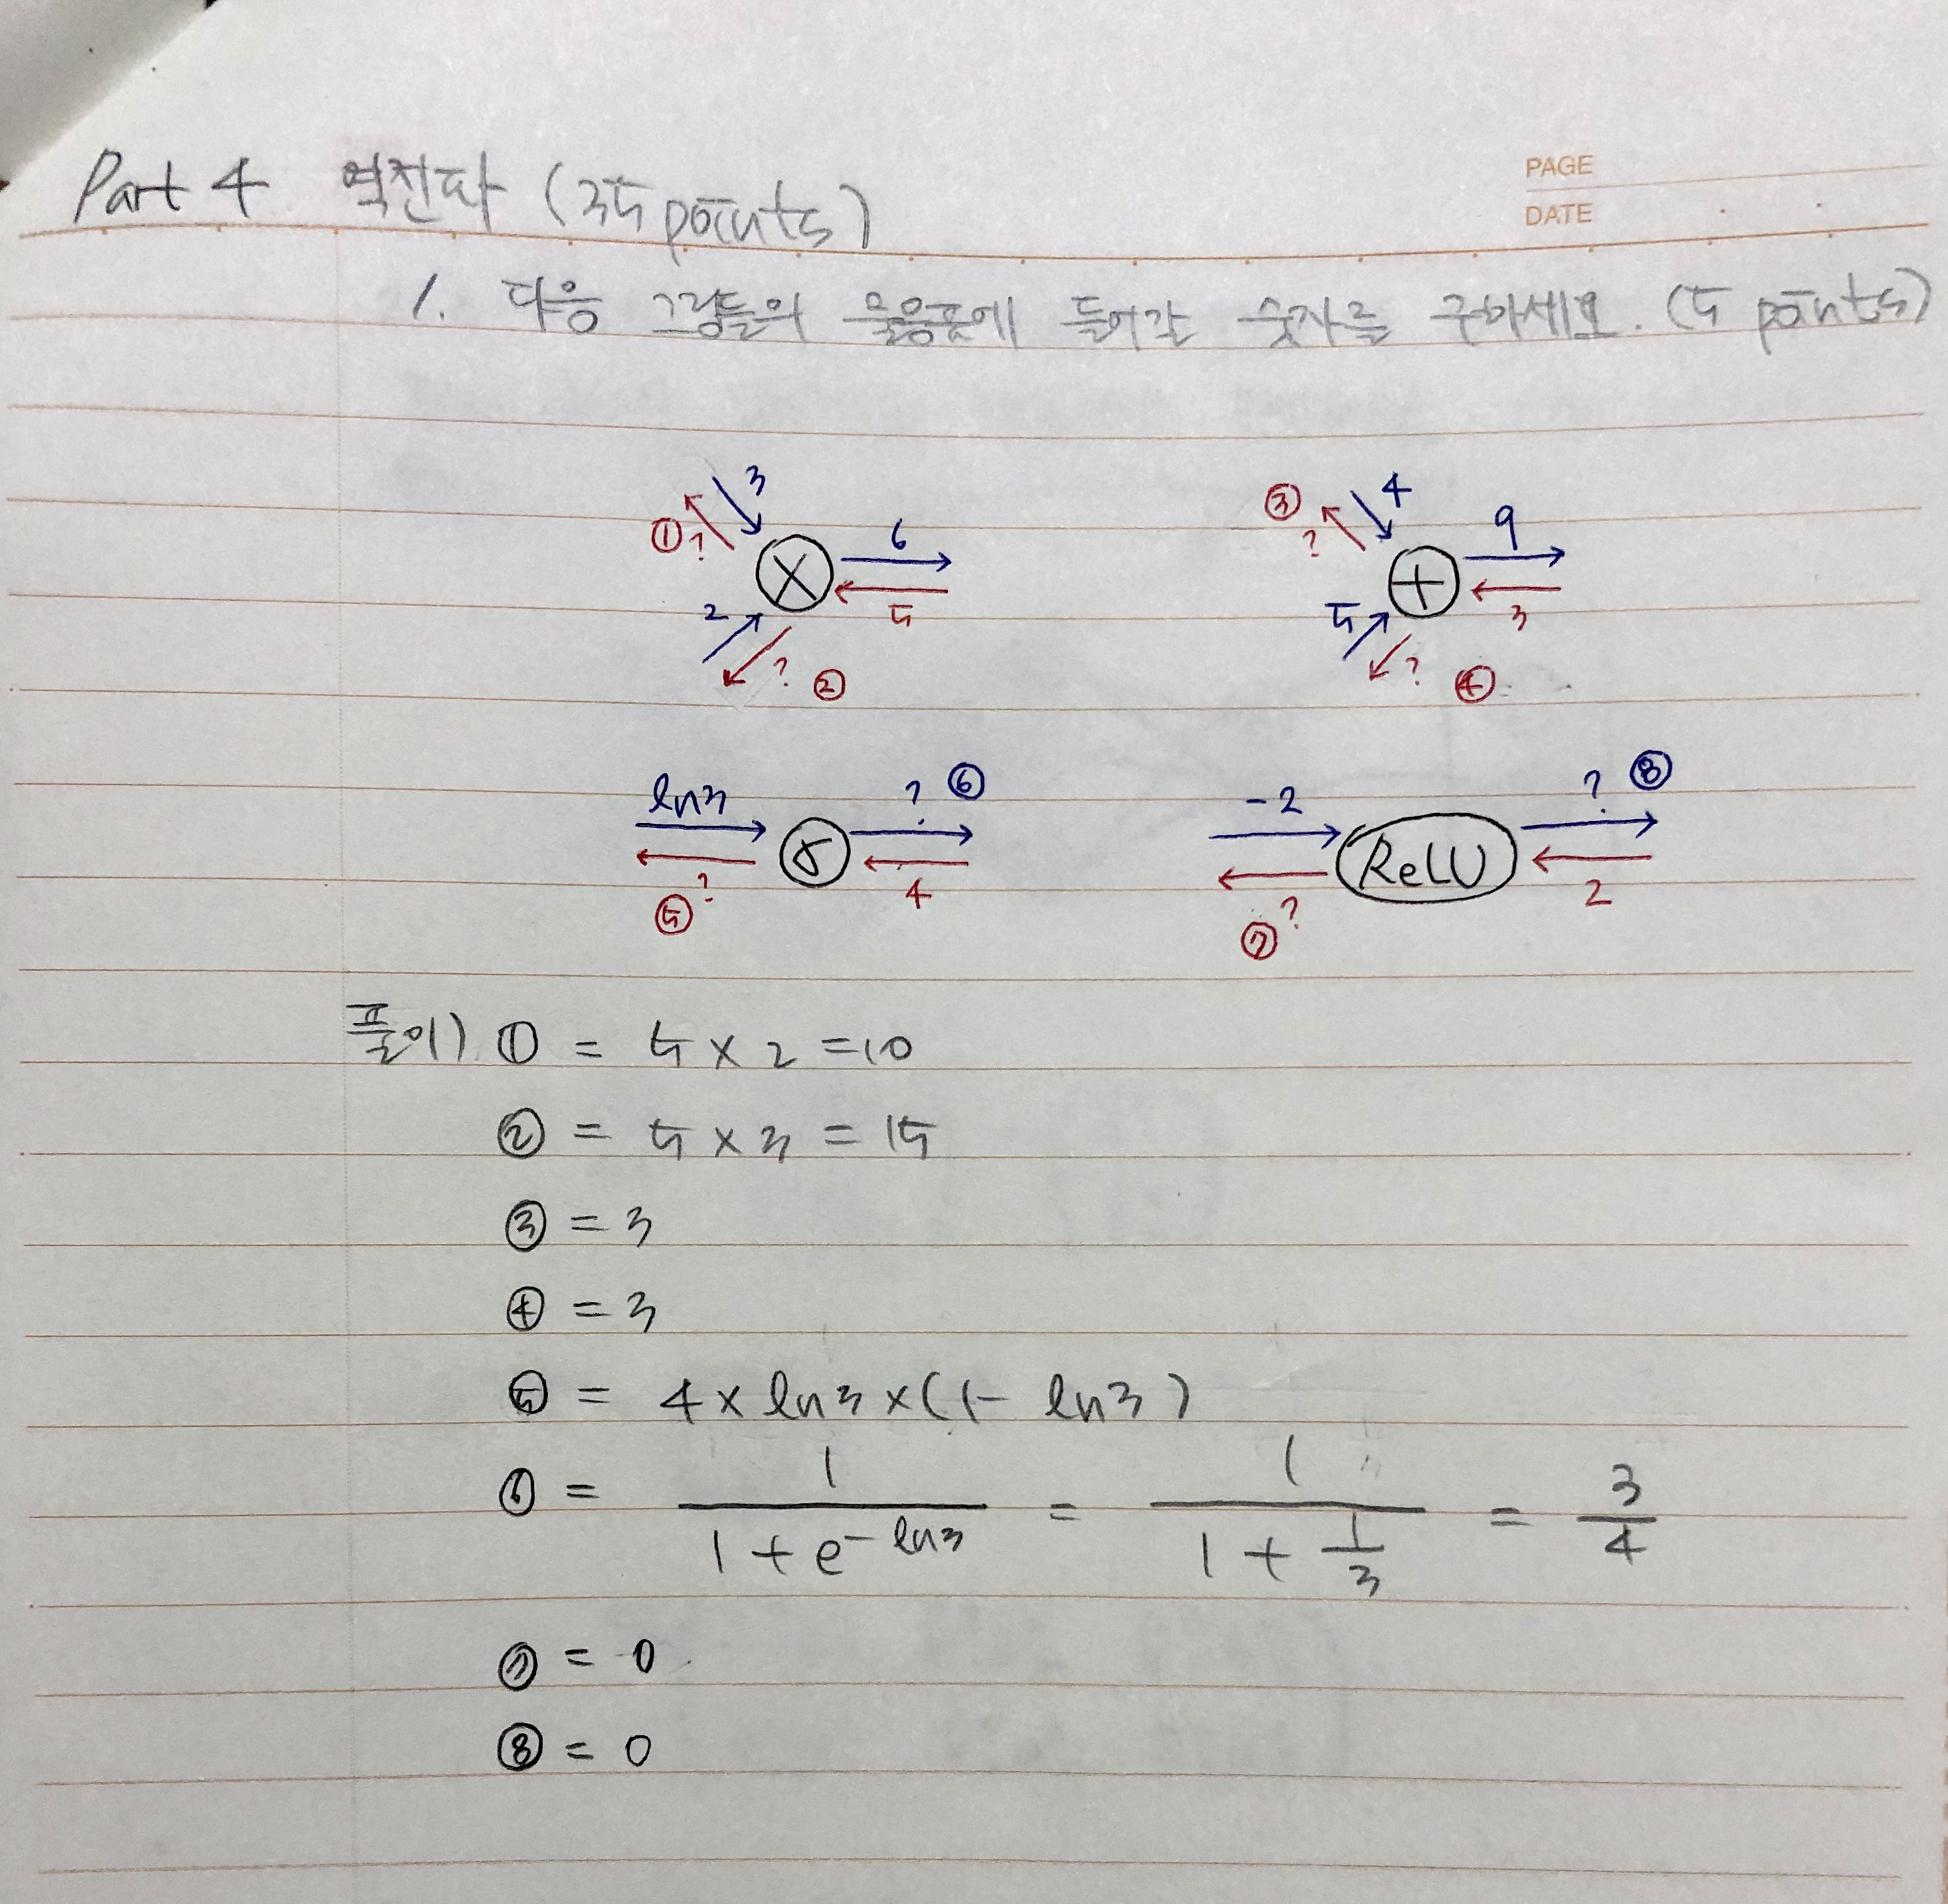 PAGE
DATE
Part 4 역전파 (35 points)
1. 다음 그림들의 물음표에 들어갈 숫자를 구하세요. (5 points)
3
① ?
6
×
5
2
? ②
③
?
4
9
+
3
5
? ④
ln3
? ⑥
σ
4
⑤ ?
-2
? ⑧
ReLU
2
⑦ ?
풀이) ① = 5 × 2 = 10
② = 5 × 3 = 15
③ = 3
④ = 3
⑤ = 4 × ln3 × (1 - ln3)
⑥ = 1 / (1 + e^{-ln3}) = 1 / (1 + 1/3) = 3/4
⑦ = 0
⑧ = 0